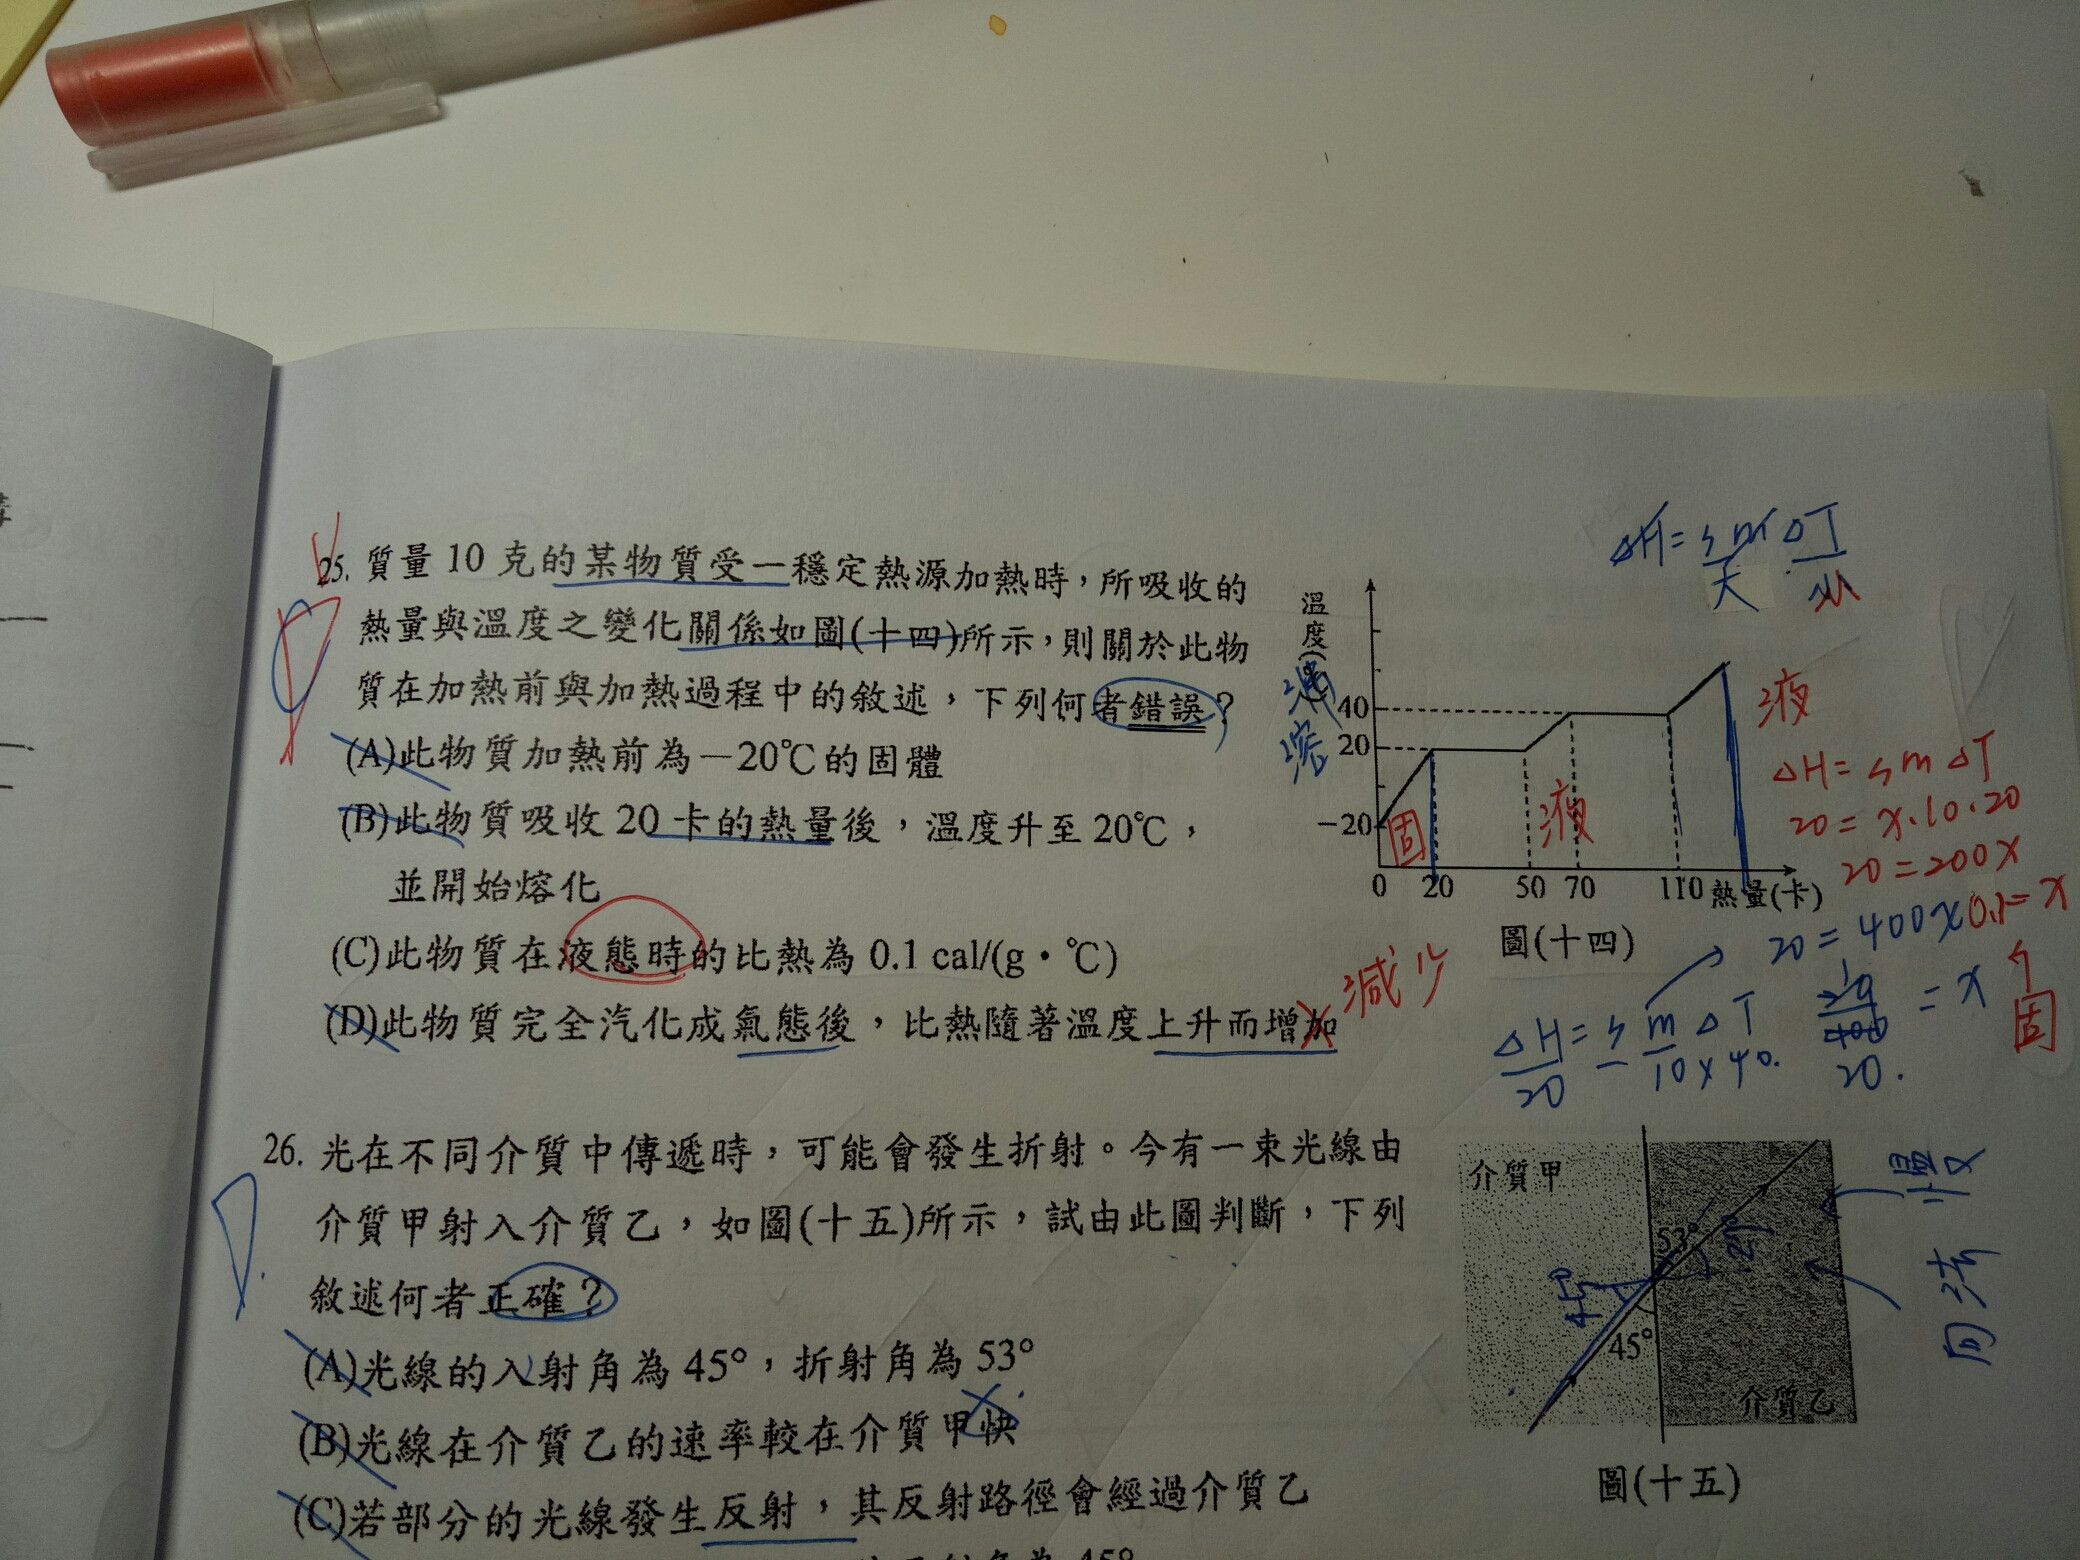 25. 質量 10 克的某物質受一穩定熱源加熱時，所吸收的
熱量與溫度之變化關係如圖(十四)所示，則關於此物
質在加熱前與加熱過程中的敘述，下列何者錯誤？
(A)此物質加熱前為－20℃的固體
(B)此物質吸收 20 卡的熱量後，溫度升至 20℃，
並開始熔化
(C)此物質在液態時的比熱為 0.1 cal/(g・℃)
(D)此物質完全汽化成氣態後，比熱隨著溫度上升而增加
減少
ΔH = s m ΔT
大 小
溫度
40
20
－20
0 20 50 70 110 熱量(卡)
固
液
液
圖(十四)
ΔH = s m ΔT
20 = x.10.20
20 = 200x
0.1 = x
固
20 = 400x
ΔH = s m ΔT
20 = 10 x 40.
= x
20.
26. 光在不同介質中傳遞時，可能會發生折射。今有一束光線由
介質甲射入介質乙，如圖(十五)所示，試由此圖判斷，下列
敘述何者正確？
(A)光線的入射角為 45°，折射角為 53°
(B)光線在介質乙的速率較在介質甲快
(C)若部分的光線發生反射，其反射路徑會經過介質乙
45°
介質甲
53°
45
45°
介質乙
慢
圖(十五)